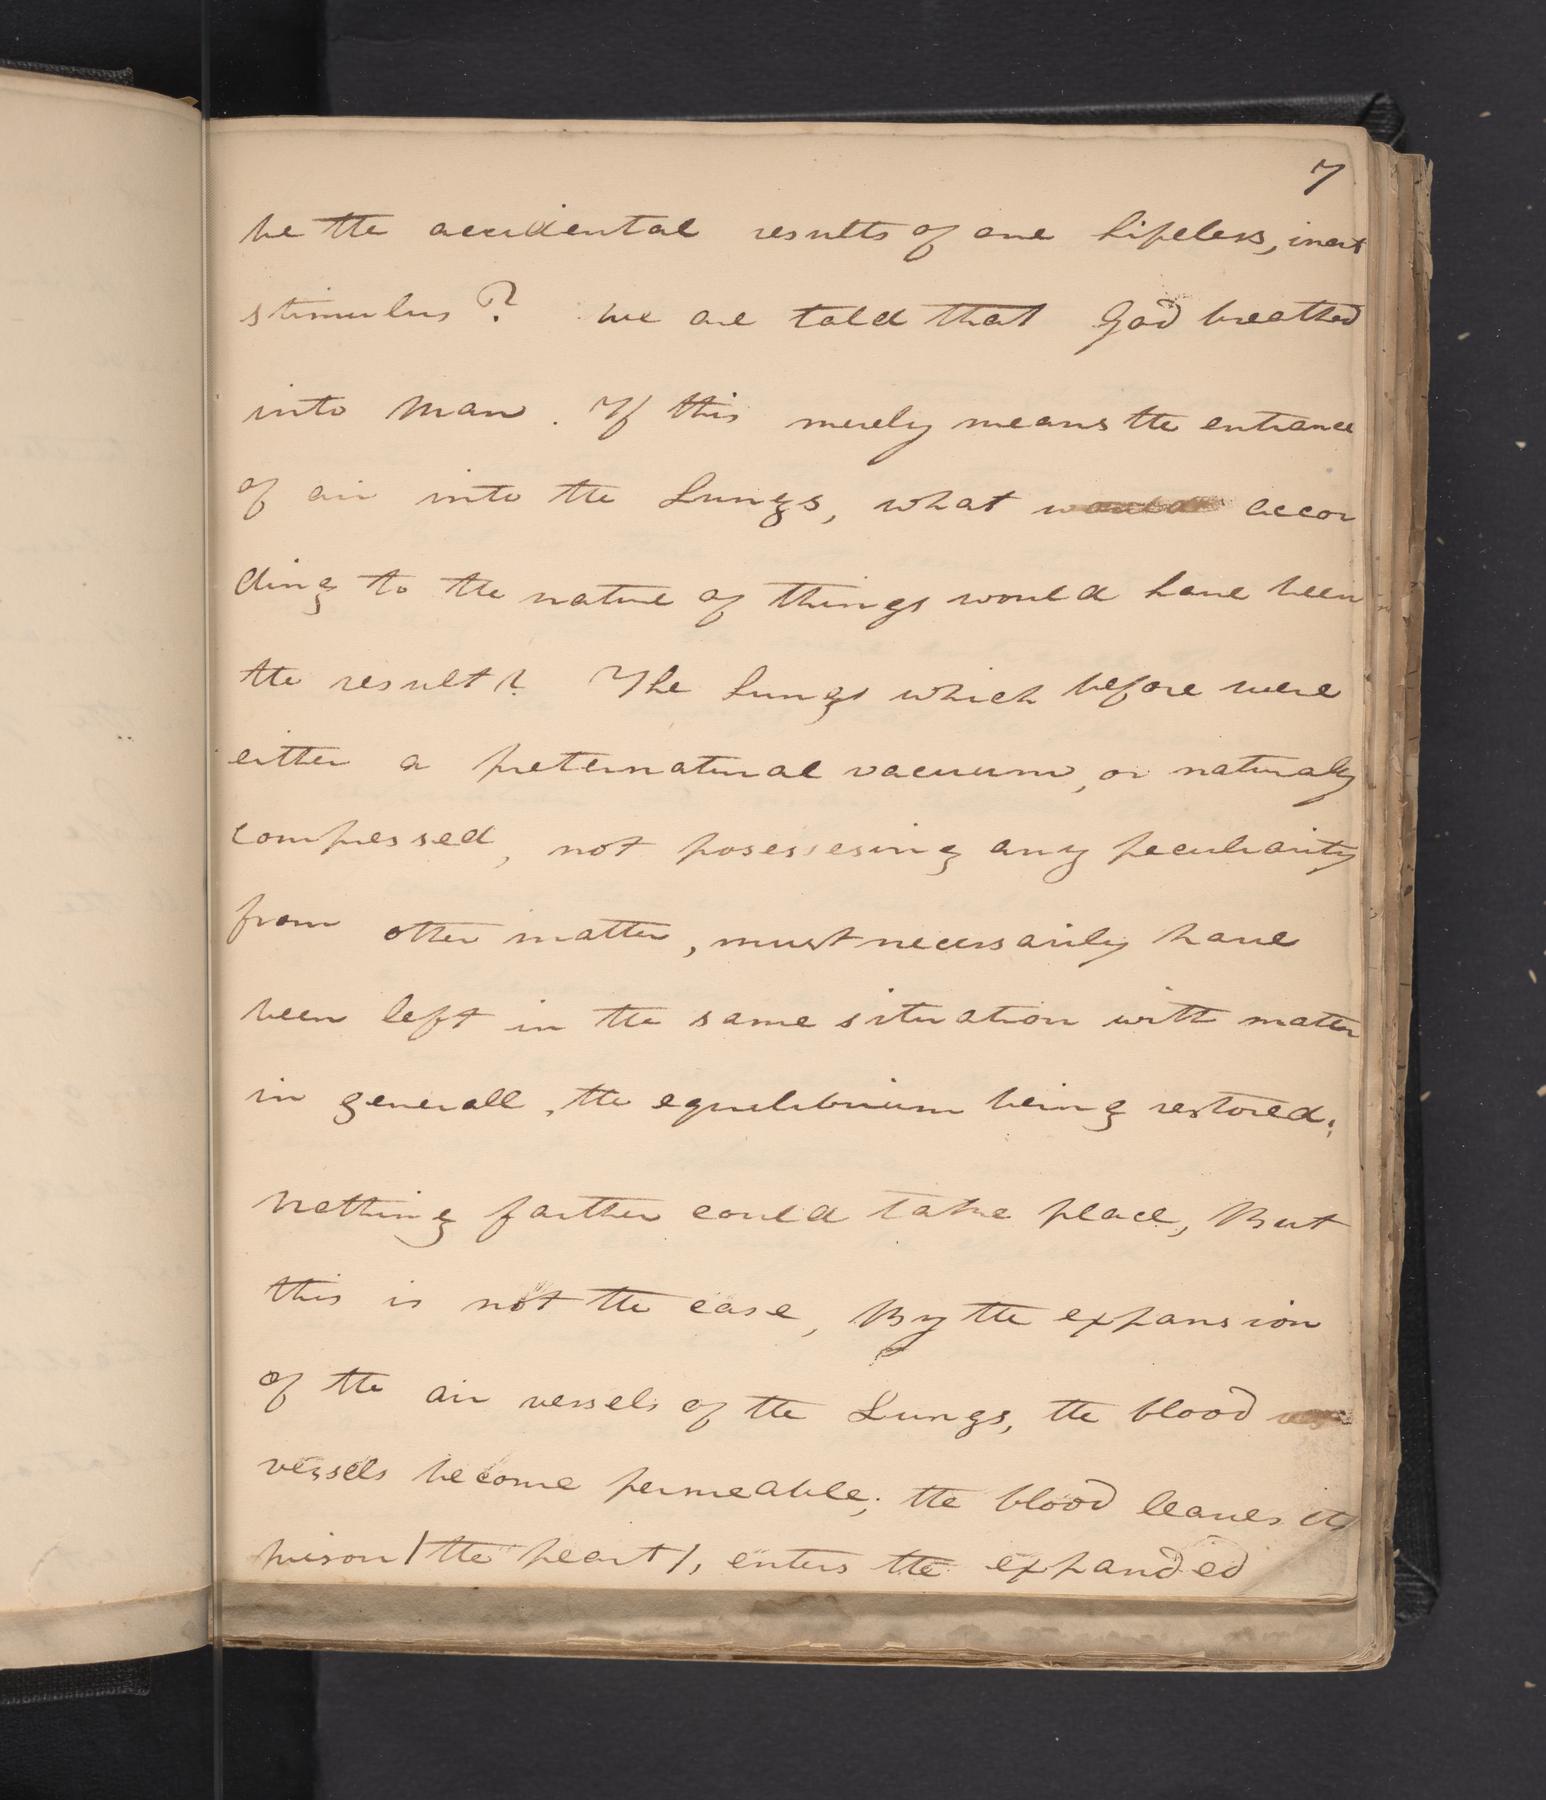 7
be the accidental results of one lifeless, inert
stimulus? we are told that God breathed
into Man. If this merely means the entrance
of air into the Lungs, what would accor
ding to the nature of things would have been
the result? The Lungs which before were
either a preternatural vacuum, or naturaly
compressed, not posessesing any peculiarity
from other matter, must necessarily have
been left in the same situation with matter
in generall, the equilibrium being restored;
nothing farther could take place, But
this is not the case, By the expansion
of the air vessels of the Lungs, the blood
vessels become permeable; the blood leaves its
prison / the heart /, enters the expanded